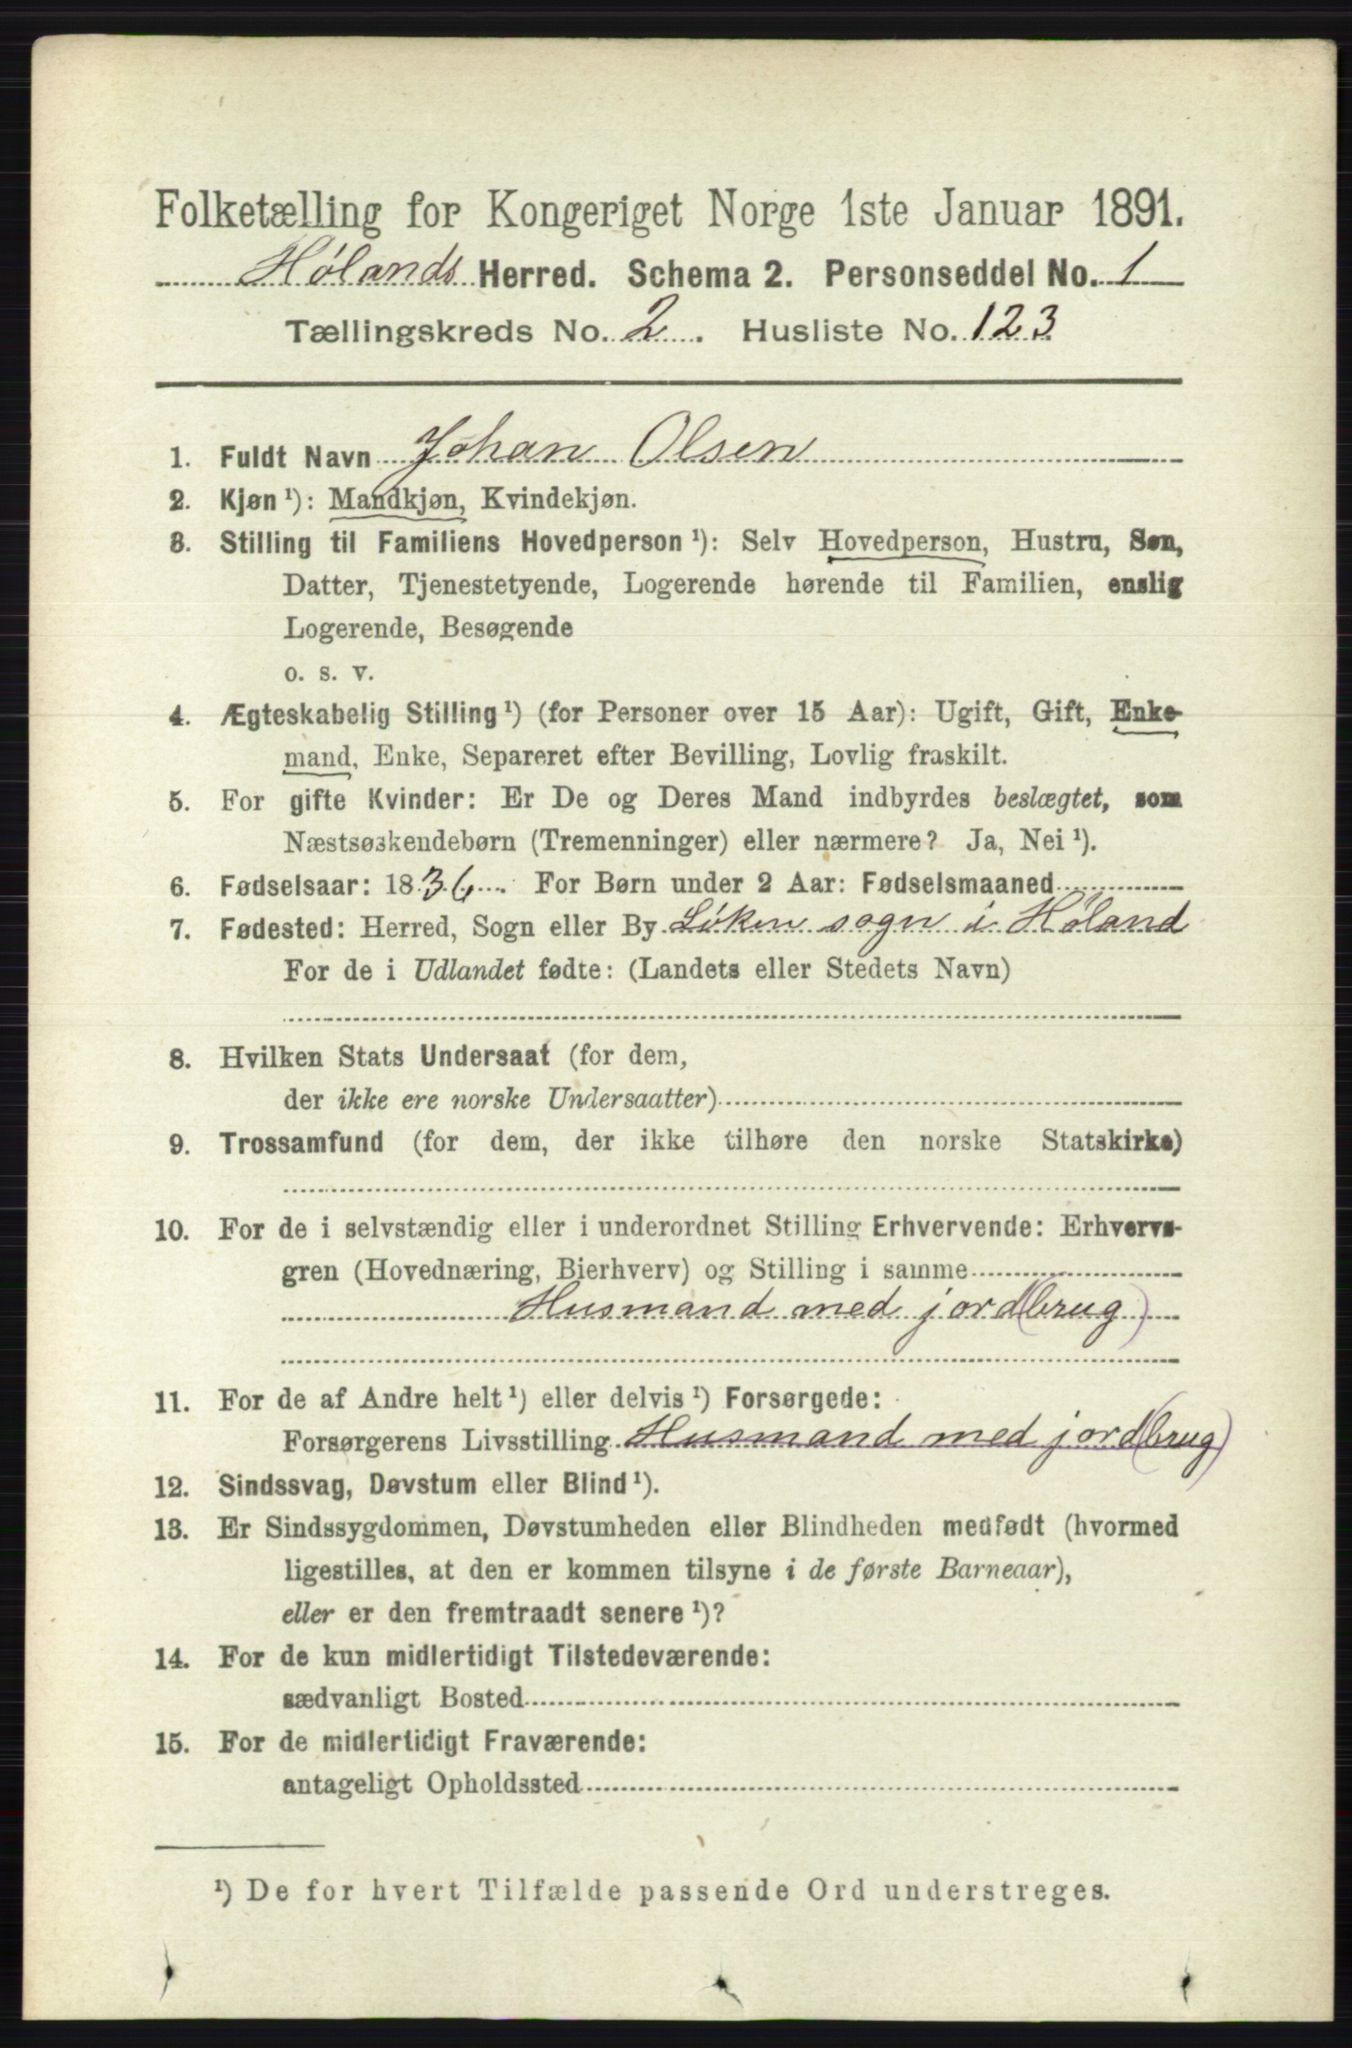 Folketælling for Kongeriget Norge 1ste Januar 1891.
Hølands Herred. Schema 2. Personseddel No. 1
Tællingskreds No. 2. Husliste No. 123
1. Fuldt Navn Johan Olsen
2. Kjøn¹): Mandkjøn, Kvindekjøn.
3. Stilling til Familiens Hovedperson¹): Selv Hovedperson, Hustru, Søn,
Datter, Tjenestetyende, Logerende hørende til Familien, enslig
Logerende, Besøgende
o. s. v.
4. Ægteskabelig Stilling¹) (for Personer over 15 Aar): Ugift, Gift, Enke-
mand, Enke, Separeret efter Bevilling, Lovlig fraskilt.
5. For gifte Kvinder: Er De og Deres Mand indbyrdes beslægtet, som
Næstsøskendebørn (Tremenninger) eller nærmere? Ja, Nei¹).
6. Fødselsaar: 1836. For Børn under 2 Aar: Fødselsmaaned
7. Fødested: Herred, Sogn eller By Løken sogn i Høland
For de i Udlandet fødte: (Landets eller Stedets Navn)
8. Hvilken Stats Undersaat (for dem,
der ikke ere norske Undersaatter)
9. Trossamfund (for dem, der ikke tilhøre den norske Statskirke)
10. For de i selvstændig eller i underordnet Stilling Erhvervende: Erhvervs-
gren (Hovednæring, Bierhverv) og Stilling i samme
Husmand med jord(brug)
11. For de af Andre helt¹) eller delvis¹) Forsørgede:
Forsørgerens Livsstilling Husmand med jord(brug)
12. Sindssvag, Døvstum eller Blind¹).
13. Er Sindssygdommen, Døvstumheden eller Blindheden medfødt (hvormed
ligestilles, at den er kommen tilsyne i de første Barneaar),
eller er den fremtraadt senere¹)?
14. For de kun midlertidigt Tilstedeværende:
sædvanligt Bosted
15. For de midlertidigt Fraværende:
antageligt Opholdssted
¹) De for hvert Tilfælde passende Ord understreges.